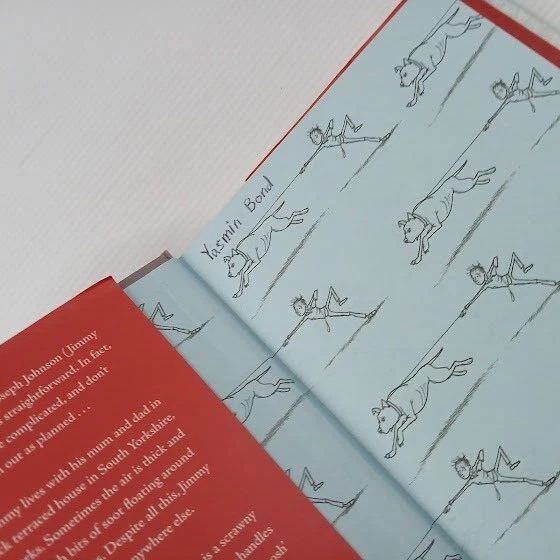 Yasmin Bond
Joseph Johnson (Jimmy
s straightforward. In fact,
complicated, and don't
out as planned ...
lives with his mum and dad in
terraced house in South Yorkshire,
Sometimes the air is thick and
bits of soot floating around
Despite all this, Jimmy
anywhere else.
is a scrawny
handles